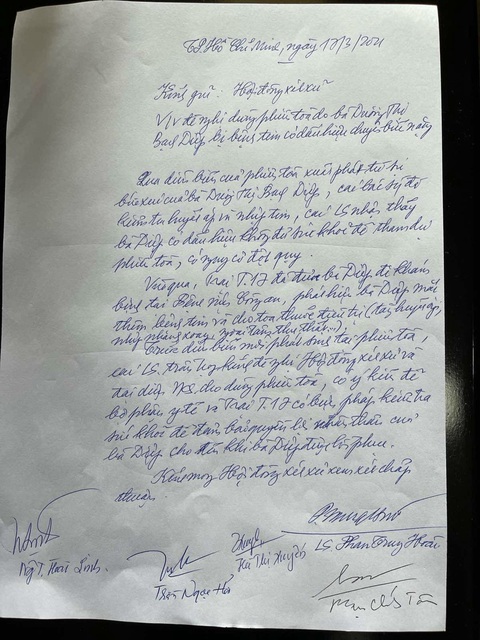 TP. Hồ Chí Minh, ngày 17/3/2021
Kính gửi: Hội đồng xét xử
V/v đề nghị dừng phiên toà do bà Dương Thị
Bạch Diệp bị bệnh tim có dấu hiệu chuyển biến nặng
Qua diễn biến của phiên toà xuất phát từ sự
của bà Dương Thị Bạch Diệp, các bác sỹ đã
kiểm tra huyết áp và nhịp tim, các LS nhận thấy
bà Diệp có dấu hiệu không đủ sức khoẻ để tham dự
phiên toà, có nguy cơ đột quỵ.
Vừa qua, Trại T.17 đã đưa bà Diệp đi khám
bệnh tại Bệnh viện Công an, phát hiện bà Diệp mắc
thêm bệnh tim và cho toa thuốc điều trị (tăng huyết áp,
nhịp nhanh xoang, ngoại tâm thu thất...).
Trước diễn biến mới phát sinh tại phiên toà,
các LS. trân trọng đề nghị Hội đồng xét xử và
đại diện VKS cho dừng phiên toà, có ý kiến để
bộ phận y tế và Trại T.17 có biện pháp kiểm tra
sức khoẻ để đảm bảo quyền lợi nhân thân của
bà Diệp cho đến khi bà Diệp được hồi phục.
Kính mong Hội đồng xét xử xem xét chấp
thuận.
LS. Phan Trung Hoài
Trần Ngọc Hà